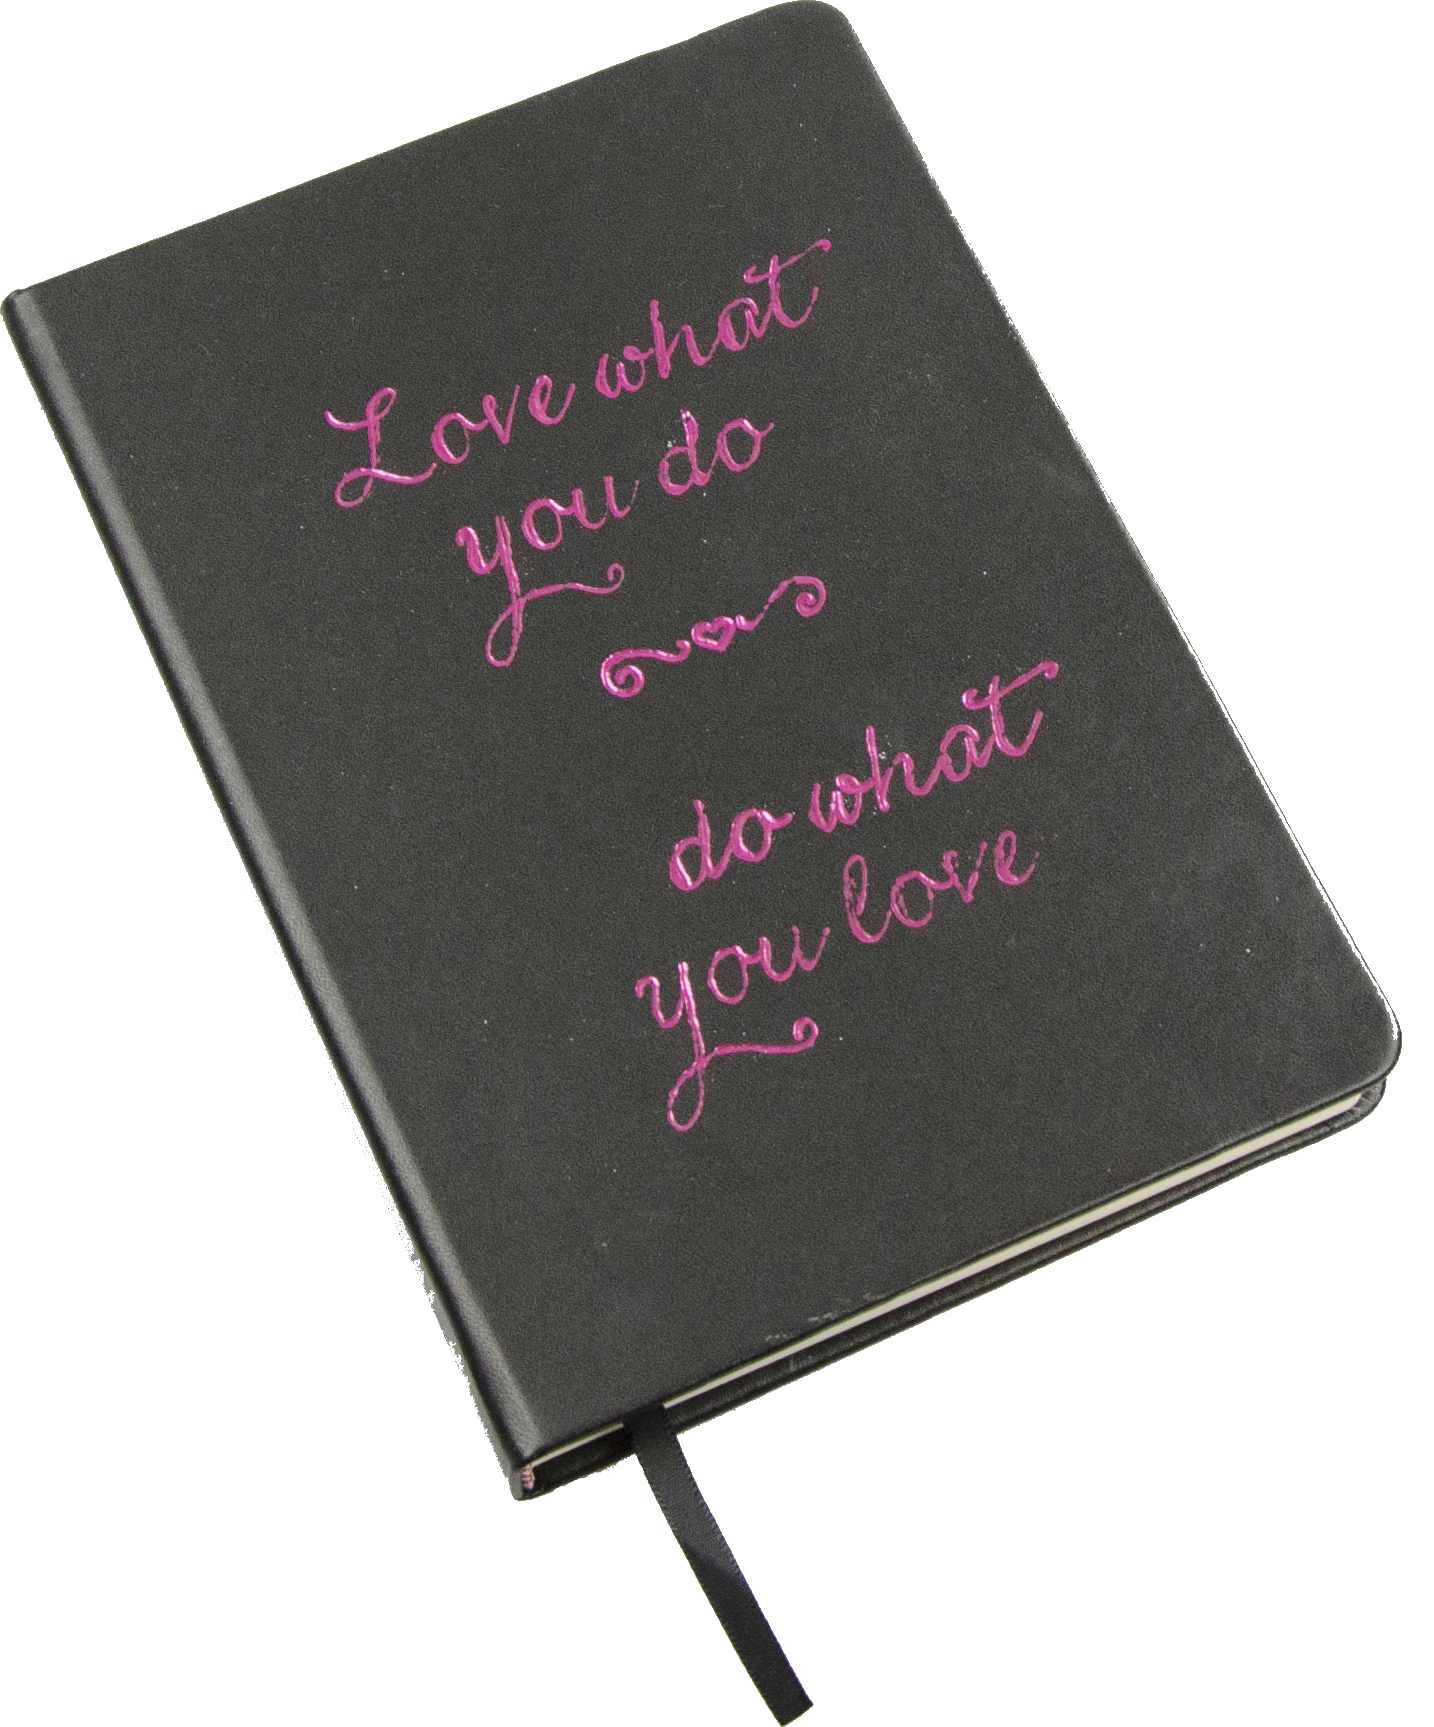 Love what
you do
do what
you love